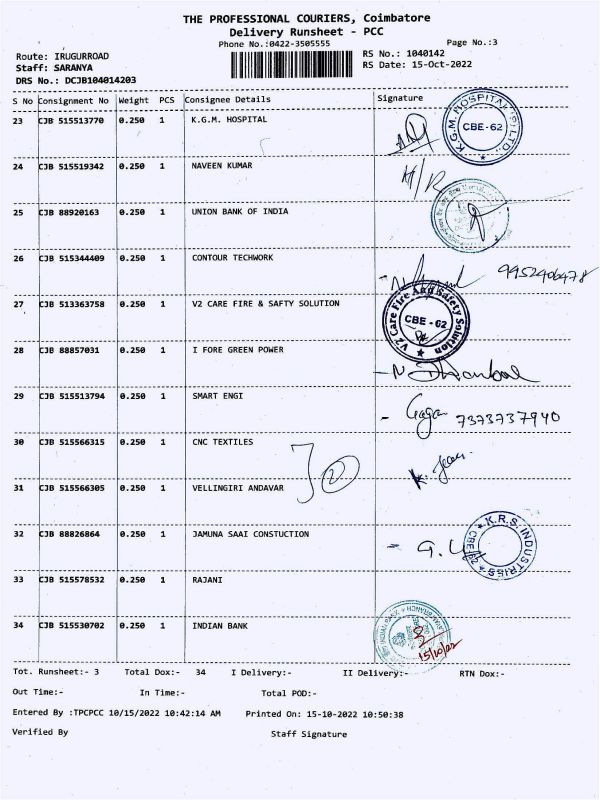 THE PROFESSIONAL COURIERS, Coimbatore
Delivery Runsheet - PCC
Phone No.:0422-3505555
Page No.:3
Route: IRUGURROAD
RS No.: 1040142
Staff: SARANYA
RS Date: 15-Oct-2022
DRS No.: DCJB104014203
S No Consignment No Weight PCS Consignee Details Signature
23 CJB 515513770 0.250 1 K.G.M. HOSPITAL
K.G.M. HOSPITAL (P) LTD. CBE-62
24 CJB 515519342 0.250 1 NAVEEN KUMAR
25 CJB 88920163 0.250 1 UNION BANK OF INDIA
26 CJB 515344409 0.250 1 CONTOUR TECHWORK
9952406478
27 CJB 513363758 0.250 1 V2 CARE FIRE & SAFTY SOLUTION
V2 Care Fire And Safety Solution CBE - 62
28 CJB 88857031 0.250 1 I FORE GREEN POWER
29 CJB 515513794 0.250 1 SMART ENGI
- Gaga 7373737940
30 CJB 515566315 0.250 1 CNC TEXTILES
31 CJB 515566305 0.250 1 VELLINGIRI ANDAVAR
32 CJB 88826864 0.250 1 JAMUNA SAAI CONSTUCTION
K.R.S. INDUSTRIES CBE-62
33 CJB 515578532 0.250 1 RAJANI
34 CJB 515530702 0.250 1 INDIAN BANK
15/10/22
Tot. Runsheet:- 3 Total Dox:- 34 I Delivery:- II Delivery:- RTN Dox:-
Out Time:- In Time:- Total POD:-
Entered By :TPCPCC 10/15/2022 10:42:14 AM Printed On: 15-10-2022 10:50:38
Verified By Staff Signature